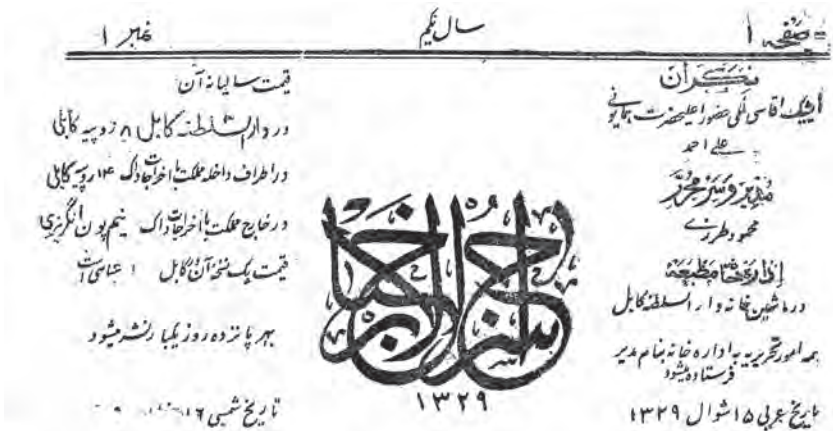 صفحه ۱
سال یکم
نمبر ۱
نگران
ایشک اقاسی ملکی حضور اعلیحضرت همایونی
علی احمد
مدیر و سرمحرر
محمود طرزی
اداره خانه مطبعه
در ماشین خانه دارالسلطنه کابل
همه امور تحریریه به اداره خانه بنام مدیر
فرستاده میشود
تاریخ عربی ۱۵ شوال ۱۳۲۹
سراج الاخبار
۱۳۲۹
قیمت سالیانه آن
در دارالسلطنه کابل ۸ روپیه کابلی
در اطراف داخله مملکت با اخراجات داک ۱۴ روپیه کابلی
در خارج مملکت با اخراجات داک نیم پون انگریزی
قیمت یک نسخه آن در کابل ۱ عباسی است
بهر پانزده روز یکبار نشر میشود
تاریخ شمسی ۱۶